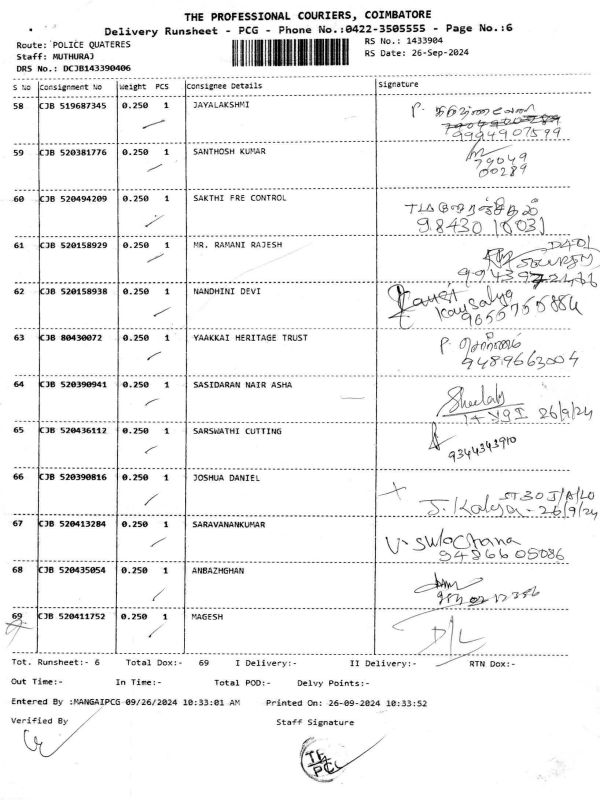 THE PROFESSIONAL COURIERS, COIMBATORE
Delivery Runsheet - PCG - Phone No.:0422-3505555 - Page No.:6
Route: POLICE QUATERES
RS No.: 1433904
Staff: MUTHURAJ
RS Date: 26-Sep-2024
DRS No.: DCJB143390406
S No Consignment No Weight PCS Consignee Details Signature
58 CJB 519687345 0.250 1 JAYALAKSHMI
P.
9994907599
59 CJB 520381776 0.250 1 SANTHOSH KUMAR
79049
00289
60 CJB 520494209 0.250 1 SAKTHI FRE CONTROL
98430 10031
61 CJB 520158929 0.250 1 MR. RAMANI RAJESH
62 CJB 520158938 0.250 1 NANDHINI DEVI
Kausalya
9655755884
63 CJB 80430072 0.250 1 YAAKKAI HERITAGE TRUST
P.
9489663004
64 CJB 520390941 0.250 1 SASIDARAN NAIR ASHA
26/9/24
65 CJB 520436112 0.250 1 SARSWATHI CUTTING
9344343910
66 CJB 520390816 0.250 1 JOSHUA DANIEL
J. Kalya - 26/9/24
67 CJB 520413284 0.250 1 SARAVANANKUMAR
V. Sulochana
9486605086
68 CJB 520435054 0.250 1 ANBAZHGHAN
69 CJB 520411752 0.250 1 MAGESH
D/L
Tot. Runsheet:- 6 Total Dox:- 69 I Delivery:- II Delivery:- RTN Dox:-
Out Time:- In Time:- Total POD:- Delvy Points:-
Entered By :MANGAIPCG 09/26/2024 10:33:01 AM Printed On: 26-09-2024 10:33:52
Verified By Staff Signature